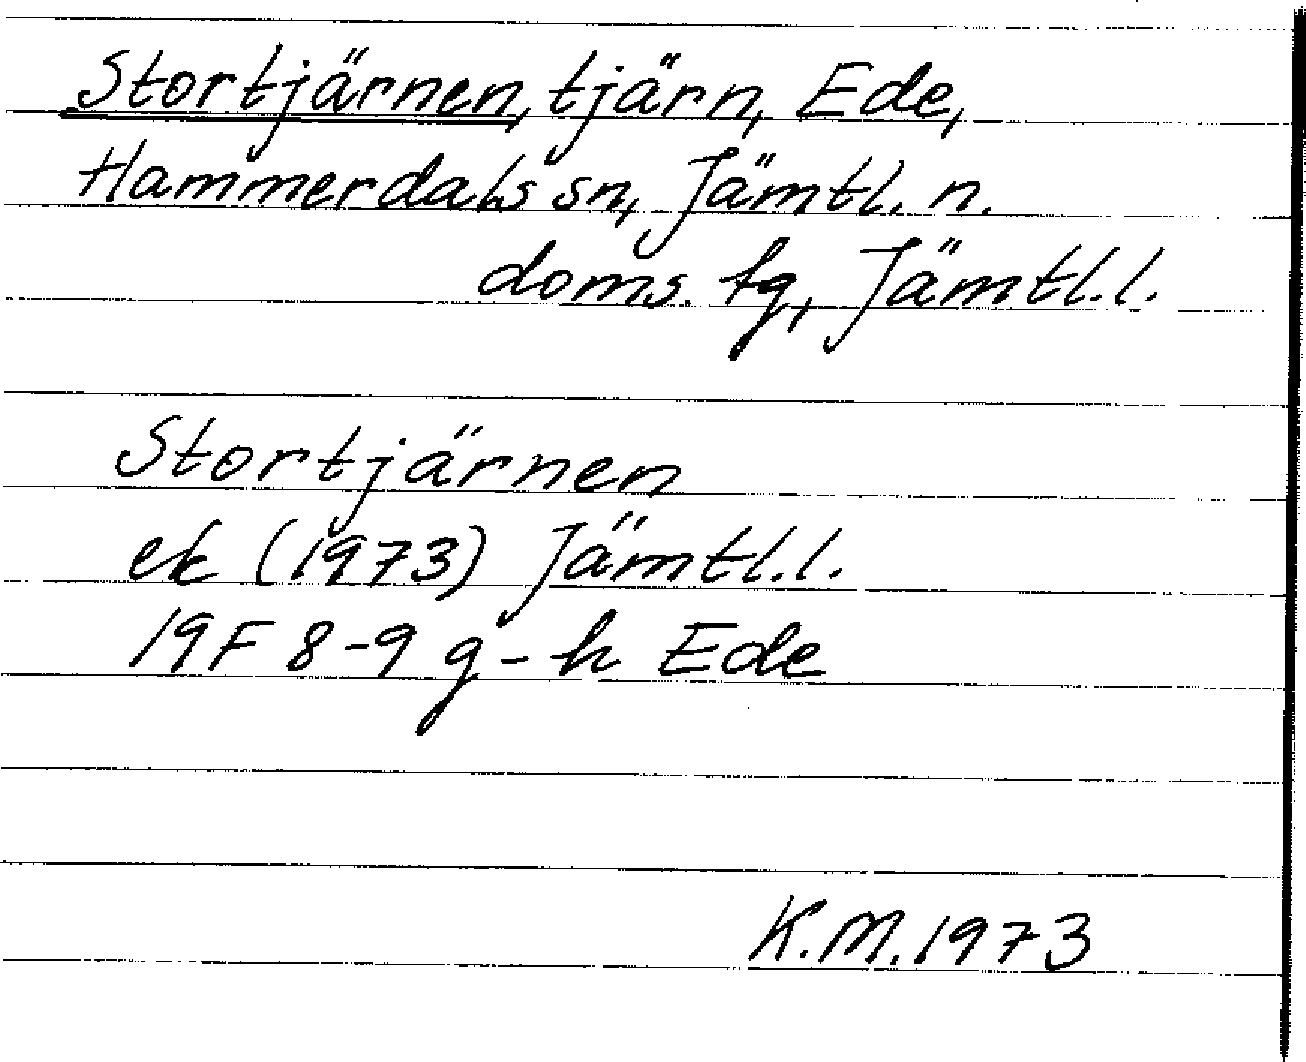 Stortjärnen, tjärn, Ede,
Hammerdals sn, Jämtl. n.
doms. tg, Jämtl.l.
Stortjärnen
ek (1973) Jämtl.l.
19F 8-9 g-h Ede
K.M. 1973